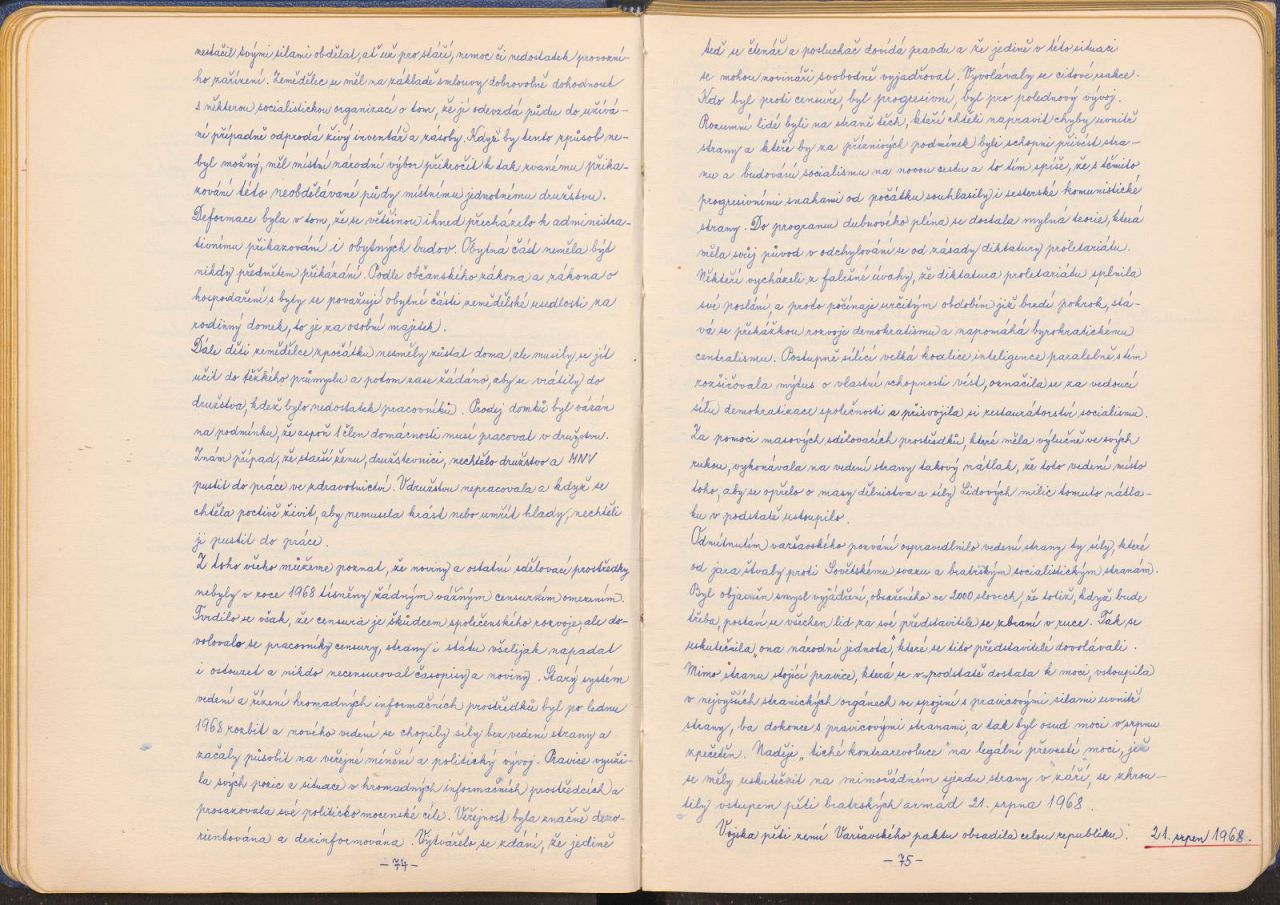 nestačil svými silami obdělat, ať už pro stáří, nemoc či nedostatek provozní-
ho zařízení. Zemědělec se měl na základě smlouvy dobrovolně dohodnout
s některou socialistickou organizací o tom, že jí odevzdá půdu do užívá-
ní případně odprodá živý inventář a zásoby. Když by tento způsob ne-
byl možný, měl místní národní výbor přikročit k tak zvanému přika-
zování této neobdělávané půdy místnímu jednotnému družstvu.
Deformace byla v tom, že se většinou ihned přecházelo k administra-
tivnímu přikazování i obytných budov. Obytná část neměla být
nikdy předmětem přikázání. Podle občanského zákona a zákona o
hospodaření s byty se považují obytné části zemědělské usedlosti za
rodinný domek, to je za osobní majetek.
Dále děti zemědělce zpočátku nesměly zůstat doma, ale musily se jít
učit do těžkého průmyslu a potom zase žádáno, aby se vrátily do
družstva, kdež bylo nedostatek pracovníků. Prodej domků byl vázán
na podmínku, že aspoň 1 člen domácnosti musí pracovat v družstvu.
Znám případ, že starší ženu, družstevnici, nechtělo družstvo a MNV
pustit do práce ve zdravotnictví. V družstvu nepracovala a když se
chtěla poctivě živit, aby nemusela krást nebo umřít hlady, nechtěli
ji pustit do práce.
Z toho všeho můžeme poznat, že noviny a ostatní sdělovací prostředky
nebyly v roce 1968 tísněny žádným vážným censurním omezením.
Tvrdilo se však, že censura je škůdcem společenského rozvoje, ale do-
volovalo se pracovníky censury, strany i státu všelijak napadat
i ostouzet a nikdo necensuroval časopisy a noviny. Starý systém
vedení a řízení hromadných informačních prostředků byl po lednu
1968 rozbit a nového vedení se chopily síly bez vedení strany a
začaly působit na veřejné mínění a politický vývoj. Pravice využi-
la svých pozic a situace v hromadných informačních prostředcích a
prosazovala své politicko mocenské cíle. Veřejnost byla značně dezo-
rientována a dezinformována. Vytvářelo se zdání, že jedině
- 74 -
teď se čtenář a posluchač dovídá pravdu a že jedině v této situaci
se mohou novináři svobodně vyjadřovat. Vyvolávaly se citové reakce.
Kdo byl proti censuře, byl progresivní, byl pro polednový vývoj.
Rozumní lidé byli na straně těch, kteří chtěli napravit chyby uvnitř
strany a kteří by za příznivých podmínek byli schopni přivést stra-
nu a budování socialismu na novou cestu a to tím spíše, že s těmito
progresivními snahami od počátku souhlasily i sesterské komunistické
strany. Do programu dubnového pléna se dostala mylná teorie, která
měla svůj původ v odchylování se od zásady diktatury proletariátu.
Někteří vycházeli z falešné úvahy, že diktatura proletariátu splnila
své poslání, a proto počínaje určitým obdobím již brzdí pokrok, stá-
vá se překážkou rozvoje demokratismu a napomáhá byrokratickému
centralismu. Postupně sílící velká koalice inteligence paralelně s tím
rozšiřovala mýtus o vlastní schopnosti vést, označila se za vedoucí
sílu demokratizace společnosti a přisvojila si restaurátorství socialismu.
Za pomoci masových sdělovacích prostředků, které měla výlučně ve svých
rukou, vykonávala na vedení strany takový nátlak, že toto vedení místo
toho, aby se opřelo o masy dělnictva a síly Lidových milic tomuto nátla-
ku v podstatě ustoupilo.
Odmítnutím varšavského pozvání ospravedlnilo vedení strany ty síly, které
od jara štvaly proti Sovětskému svazu a bratrským socialistickým stranám.
Byl objasněn smysl vyjádření, obsaženého ve 2000 slovech, že totiž, když bude
třeba, postaví se všechen lid za své představitele se zbraní v ruce. Tak se
uskutečnila „ona národní jednota", které se tito představitelé dovolávali.
Mimo stranu stojící pravice, která se v podstatě dostala k moci, vstoupila
v nejvyšších stranických orgánech ve spojení s pravicovými silami uvnitř
strany, ba dokonce s pravicovými stranami a tak byl osud moci v srpnu
zpečetěn. Naděje „tiché kontrarevoluce" na legální převzetí moci, jež
se měly uskutečnit na mimořádném sjezdu strany v září, se zhrou-
tily vstupem pěti bratrských armád 21. srpna 1968.
Vojska pěti zemí Varšavského paktu obsadila celou republiku. 21. srpen 1968.
- 75 -